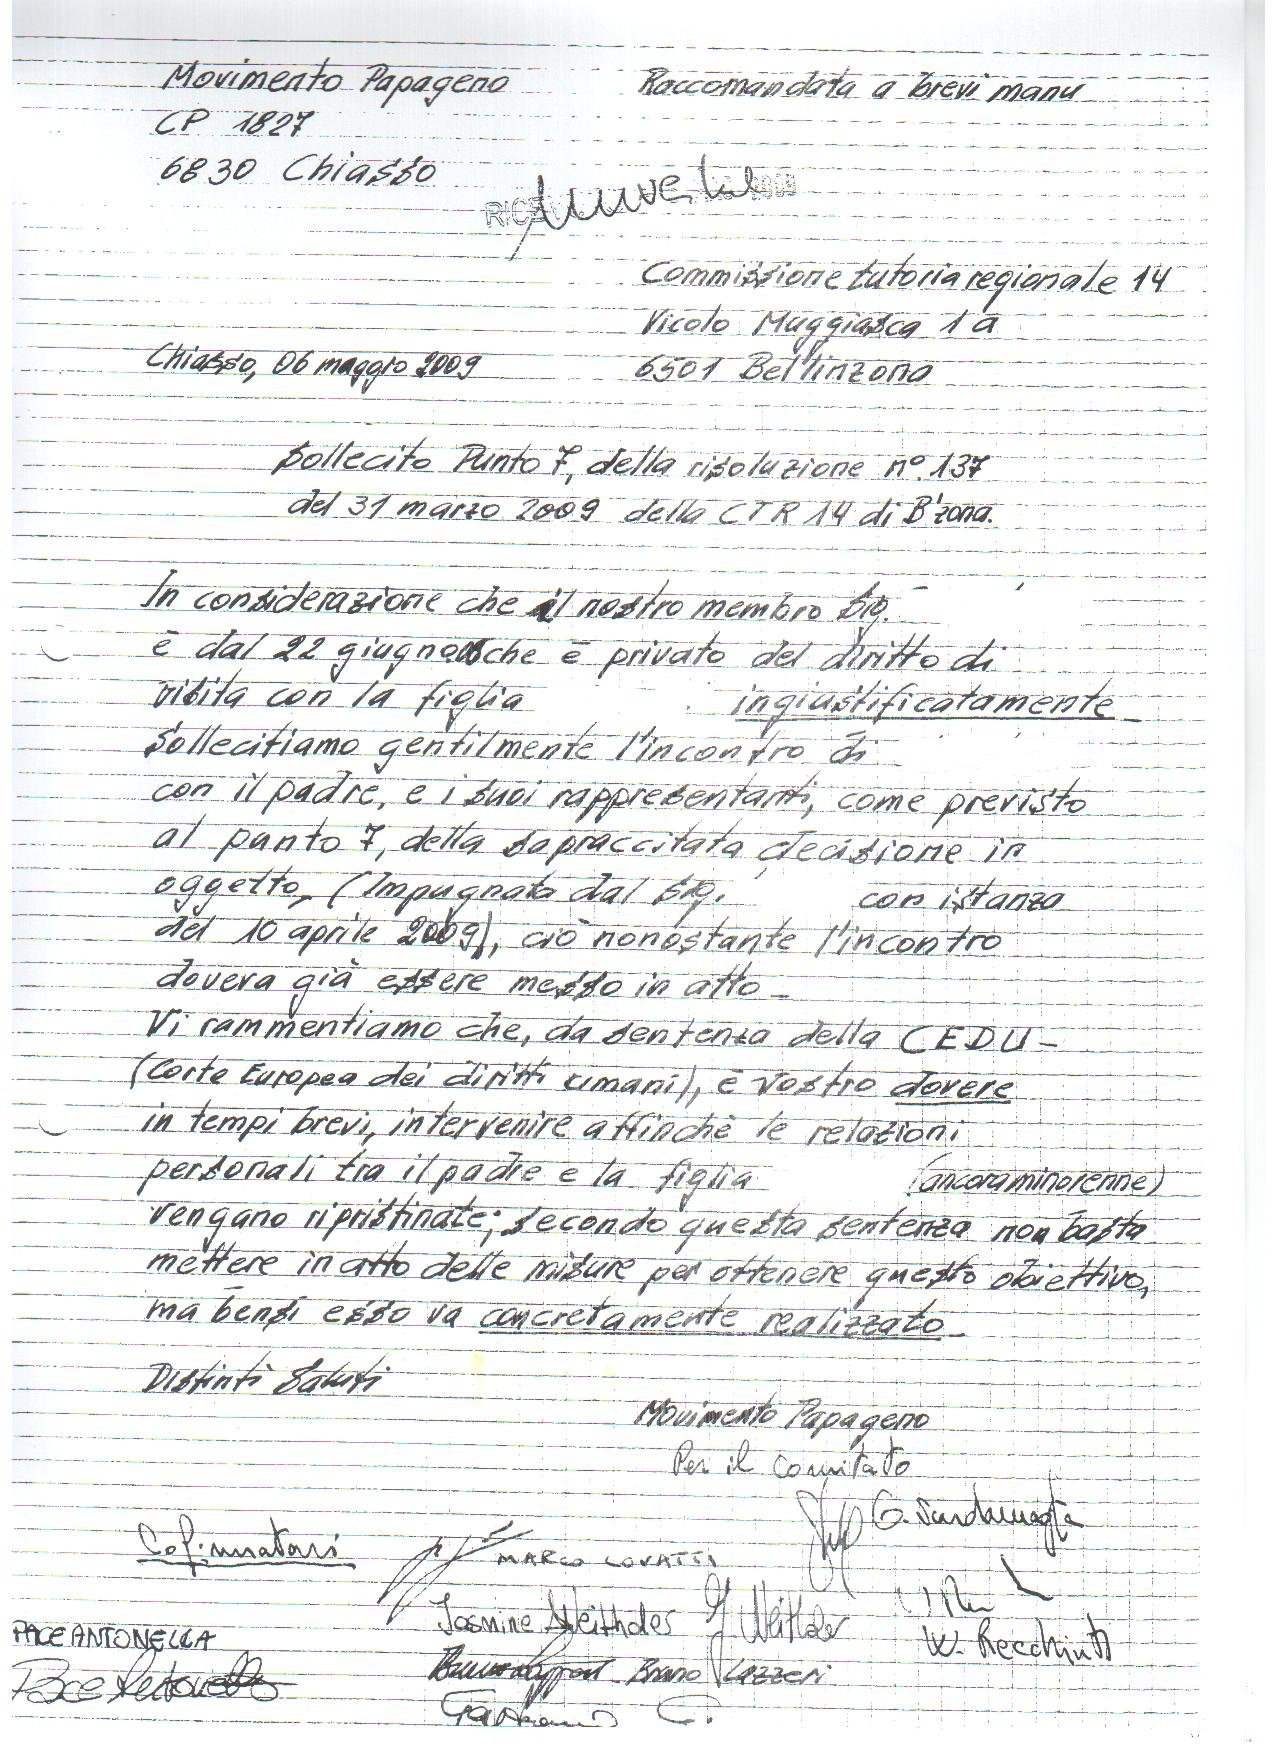 Movimento Papageno
Raccomandata a brevi manu
CP 1827
6830 Chiasso
Commissione tutoria regionale 14
Vicolo Muggiasca 1a
Chiasso, 06 maggio 2009
6501 Bellinzona
Sollecito Punto 7, della risoluzione n°. 137
del 31 marzo 2009 della CTR 14 di B'zona.
In considerazione che il nostro membro Sig.
è dal 22 giugno che è privato del diritto di
visita con la figlia ingiustificatamente
Sollecitiamo gentilmente l'incontro di
con il padre, e i suoi rappresentanti, come previsto
al punto 7, della sopraccitata decisione in
oggetto, (Impugnata dal Sig. con istanza
del 10 aprile 2009), ciò nonostante l'incontro
doveva già essere messo in atto
Vi rammentiamo che, da sentenza della CEDU -
(Corte Europea dei diritti umani), è Vostro dovere
in tempi brevi, intervenire affinchè le relazioni
personali tra il padre e la figlia (ancora minorenne)
vengano ripristinate; secondo questa sentenza non basta
mettere in atto delle misure per ottenere questo obiettivo,
ma bensì esso va concretamente realizzato
Distinti Saluti
Movimento Papageno
Per il comitato
Cofirmatari
MARCO LOVATTI
Jasmine
PACE ANTONELLA
W. Recchiuti
Bruno Lazzeri
Pace Antonella